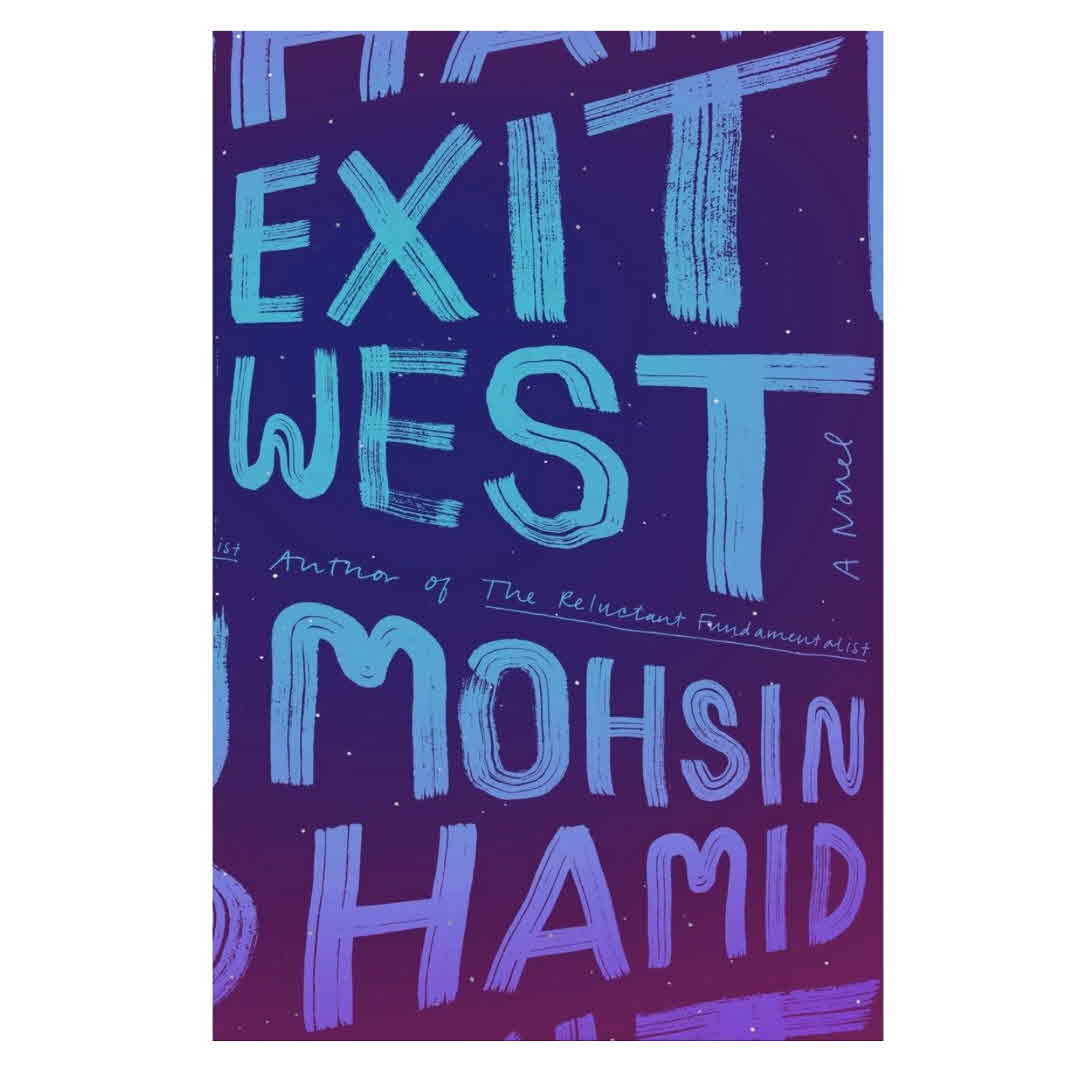 EXIT
WEST
A Novel
ist Author of The Reluctant Fundamentalist
MOHSIN
HAMID